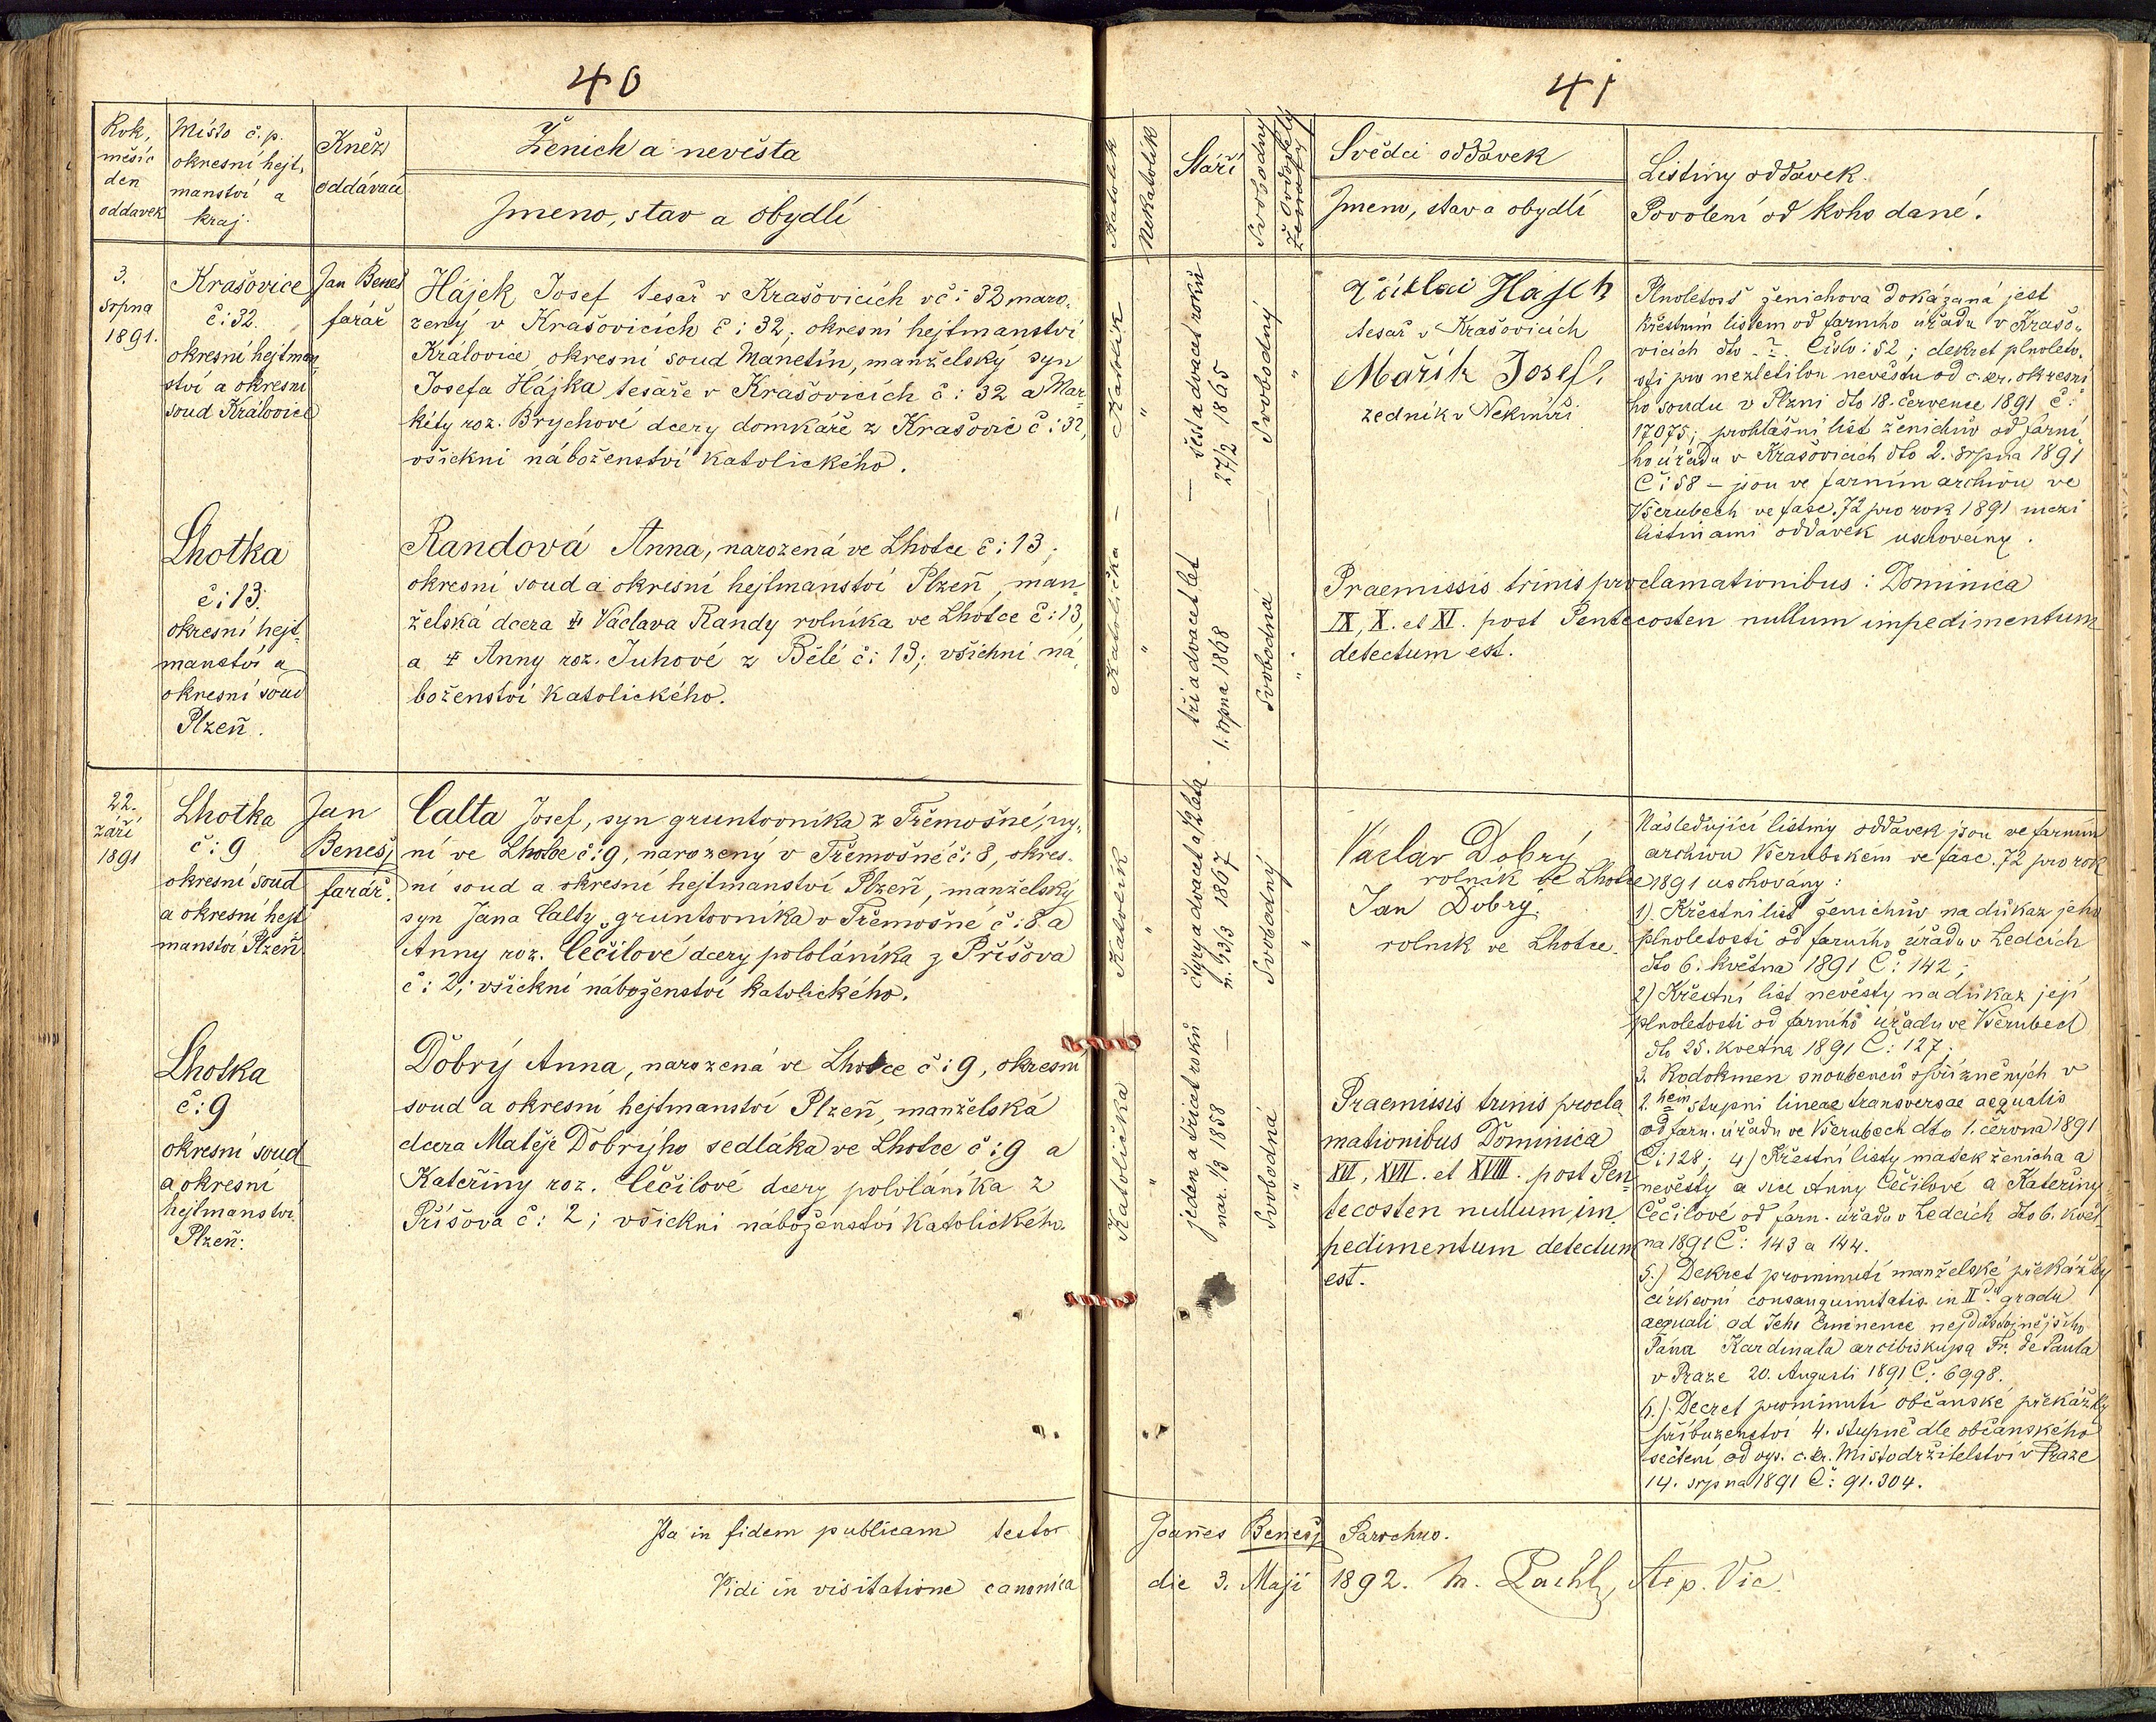 40
Rok,
měsíc
den
oddavek
Místo č.p.
okresní hejt,
manství a
kraj.
Kněz
oddávací
Ženich a nevěsta
Jmeno, stav a obydlí
3.
srpna
1891.
Krašovice
č: 32.
okresní hejtman
ství a okresní
soud Královice
Jan Beneš
farář
Hájek Josef tesař v Krašovicích vč: 32, naro,
zený v Krašovicích č: 32; okresní hejtmanství
Královice, okresní soud Manetín, manželský syn
Josefa Hájka tesaře v Krašovicích č: 32 a Mar,
kéty roz. Brychové dcery domkáře z Krašovic č: 32,
všickni náboženství katolického.
Lhotka
č: 13.
okresní hejt,
manství a
okresní soud
Plzeň.
Randová Anna, narozená ve Lhotce č: 13;
okresní soud a okresní hejtmanství Plzeň, man,
želská dcera ‡ Václava Randy rolníka ve Lhotce č: 13,
a ‡ Anny roz. Juhové z Bělé č: 13; všichni ná,
boženství katolického.
22.
září
1891
Lhotka
č: 9
okresní soud
a okresní hejt
manství Plzeň
Jan
Beneš,
farář.
Calta Josef, syn gruntovníka z Třemošné, ny,
ní ve Lhotce č: 9, narozený v Třemošné č: 8, okres-
ní soud a okresní hejtmanství Plzeň, manželský
syn Jana Calty, gruntovníka v Třemošné č: 8 a
Anny roz. Čečilové dcery pololáníka z Příšova
č: 2; všickni náboženství katolického.
Lhotka
č: 9
okresní soud
a okresní
hejtmanství
Plzeň:
Dobrý Anna, narozená ve Lhotce č: 9, okresní
soud a okresní hejtmanství Plzeň, manželská
dcera Matěje Dobrýho sedláka ve Lhotce č: 9 a
Kateřiny roz. Čečilové dcery pololáníka z
Příšova č: 2; všickni náboženství katolického.
Ita in fidem publicam testor
Vidi in visitatione canonica
41
Katolík
Nekatolík
Stáří
Svobodný
Svědci oddavek
Jmeno, stav a obydlí
Listiny oddavek.
Povolení od koho dané.
Katolík
"
šest a dvacet roků
27/2 1865
Svobodný
"
Hajek
tesař v Krašovicích
Mařík Josef,
zedník v Nekmíři
Plnoletosť ženichova dokázaná jest
křestním listem od farního úřadu v Krašo,
vicích dto ? Číslo: 52; dekret plnoleto,
sti pro nezletilou nevěstu od c. kr. okresní
ho soudu v Plzni dto 18. července 1891 č:
17075; prohlašní list ženichův od farní
ho úřadu v Krašovicích dto 2. srpna 1891
Č: 58 – jsou ve farním archivu ve
Všerubech ve fasc. 72 pro rok 1891 mezi
listinami oddavek uschovány.
Katolička
"
tři a dvacet let
1. srpna 1868
Svobodná
"
Praemissis trinis proclamationibus: Dominica
IX, X. et XI. post Pentecosten nullum impedimentum
detectum est.
Katolík
"
čtyry a dvacet a 1/2 léta
n. 3/3 1867
Svobodný
"
Václav Dobrý
rolník ve Lhotce
Jan Dobrý,
rolník ve Lhotce.
Následující listiny oddavek jsou ve farním
archivu Všerubském ve fasc. 72 pro rok
1891 uschovány:
1). Křestní list ženichův na důkaz jeho
plnoletosti od farního úřadu v Ledcích
dto 6. května 1891 Č: 142;
2) Křestní list nevěsty na důkaz její
plnoletosti od farního úřadu ve Všerubech
dto 25. května 1891 Č: 127.
3. Rodokmen snoubenců spřízněných v
2.hem stupni lineae transversae aequalis
od farn. úřadu ve Všerubech dto 1. června 1891
Č: 128; 4) Křestní listy matek ženicha a
nevěsty a sice Anny Čečilové a Kateřiny
Čečilové od farn. úřadu v Ledcích dto 6. květ
na 1891 Č: 143 a 144.
5.) Dekret prominutí manželské překážky
církevní consanguinitatis in II gradu
aequali od Jeho Eminence nejdůstojnějšího
Pána Kardinala arcibiskupa Fr. de Paula
v Praze 20. Augusti 1891 Č: 6998.
6.) Decret prominutí občanské překážky
příbuzenství 4. stupně dle občanského
sečtení od vys. c. kr. Místodržitelství v Praze
14. srpna 1891 Č: 91.304.
Katolička
"
jeden a třicet roků
nar. 1/3 1858
Svobodná
"
Praemissis trinis procla
mationibus Dominica
XVI, XVII. et XVIII. post Pen
tecosten nullum im
pedimentum detectum
est.
Joannes Beneš, Parochus.
die 3. Maji 1892. M. Pachl, Vic.